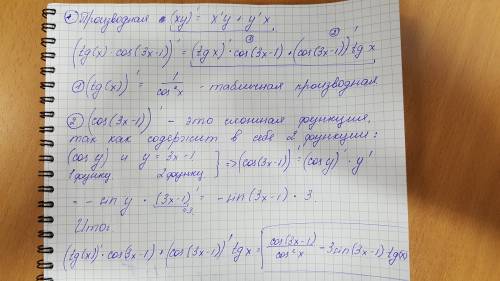 * Производная (xy)' = x'y + y'x
(tg(x) · cos(3x-1))' = (tg x)' · cos(3x-1) + (cos(3x-1))' tg x
① (tg(x))' = 1/cos²x - табличная производная
② (cos(3x-1))' - это сложная функция,
так как содержит в себе 2 функции:
(cos y) и y = 3x-1 } => (cos(3x-1))' = (cos y)' · y'
1 функц. 2 функц
= - sin y · (3x-1)' = - sin(3x-1) · 3.
=3
Итог:
(tg(x))' · cos(3x-1) + (cos(3x-1))' tg x = cos(3x-1)/cos²x - 3sin(3x-1) tg(x)